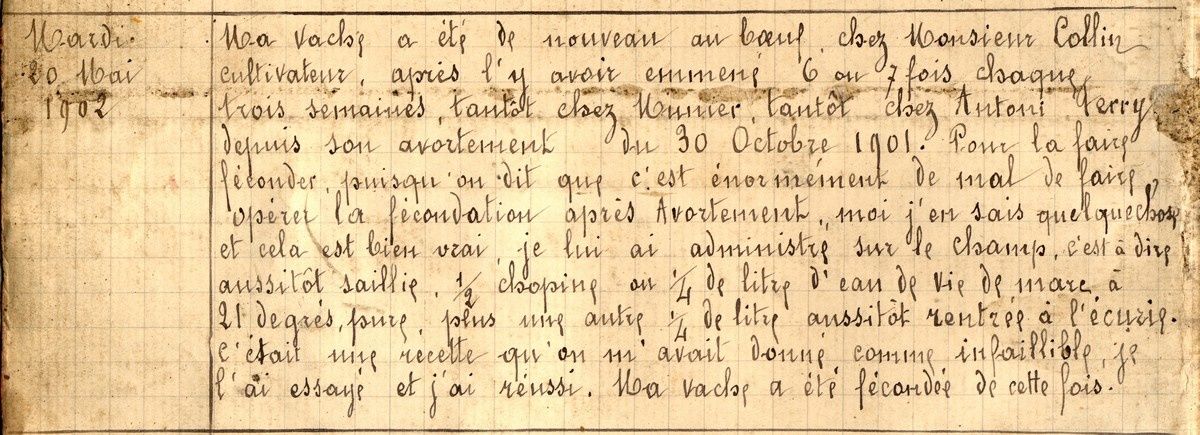 Mardi.
20 Mai
1902
Ma vache a été de nouveau au bœuf, chez Monsieur Collin
cultivateur, après l'y avoir emmené 6 ou 7 fois chaque
trois semaines, tantôt chez Munier, tantôt chez Antoni Ferry
depuis son avortement du 30 Octobre 1901. Pour la faire
féconder, puisqu'on dit que c'est énormément de mal de faire
opérer la fécondation après Avortement, moi j'en sais quelquechose
et cela est bien vrai, je lui ai administré sur le champ, c'est à dire
aussitôt saillie, 1/2 chopine ou 1/4 de litre d'eau de vie de marc à
21 degrés, pure, plus une autre 1/4 de litre aussitôt rentrée à l'écurie.
c'était une recette qu'on m'avait donné comme infaillible, je
l'ai essayé et j'ai réussi. Ma vache a été fécondée de cette fois.